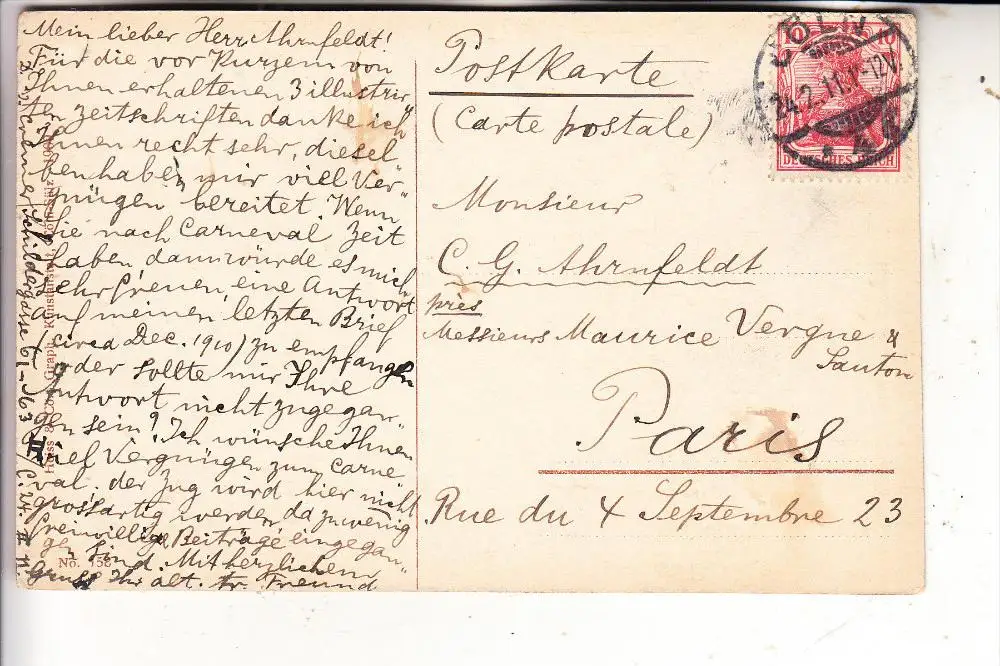 Mein lieber Herr Ahrnfeldt!
Für die vor Kurzem von
Ihnen erhaltenen 3 illustrir
ten Zeitschriften danke ich
Ihnen recht sehr, diesel
ben haben mir viel Ver-
gnügen bereitet. Wenn
Sie nach Carneval Zeit
haben dann würde es mich
sehr freuen, eine Antwort
auf meinen letzten Brief
(circa Dec. 1910) zu empfangen
oder sollte mir Ihre
Antwort nicht zugegan-
gen sein? Ich wünsche Ihnen
viel Vergnügen zum Carne
val. der Zug wird hier nicht
grossartig werden da zu wenig
freiwillige Beiträge eingegan-
gen sind. Mit herzlichem
Gruss Ihr alt. fr. Freund
Schildergasse 61-63 II
No. 158
Postkarte
(Carte postale)
CÖLN
24.2.11.11-12V
* 4
10 10
DEUTSCHES REICH
Monsieur
C. G. Ahrnfeldt
près
Messieurs Maurice Vergne &
Santon
Paris
Rue du 4 Septembre 23